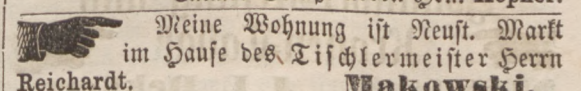 Meine Wohnung ist Neust. Markt
im Hause des Tischlermeister Herrn
Reichardt. Makowski.